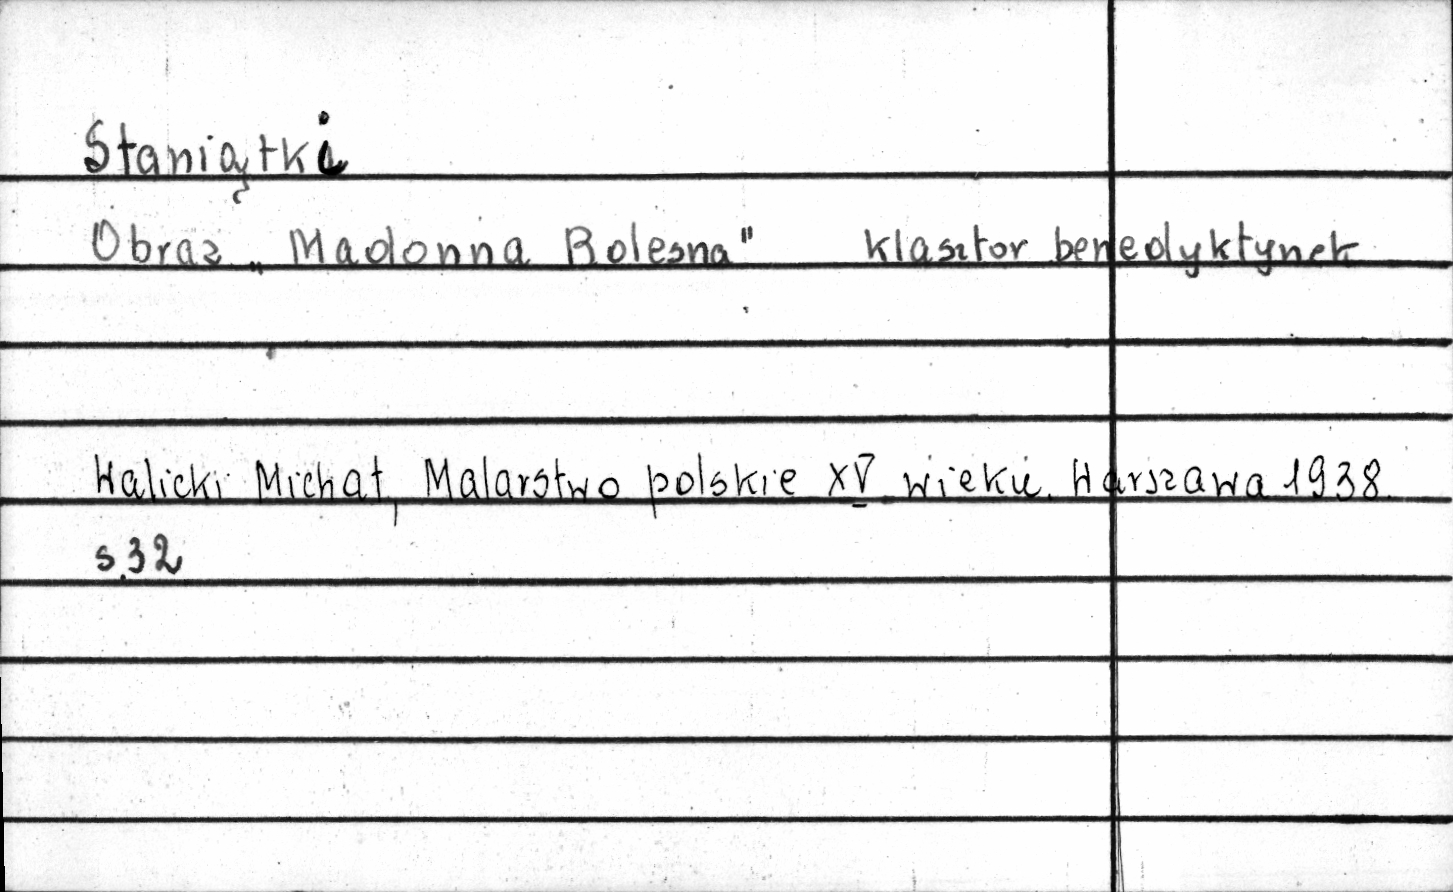 Staniątki
Obraz „Madonna Bolesna" klasztor benedyktynek
Walicki Michał, Malarstwo polskie XV wieku. Warszawa 1938.
s.32